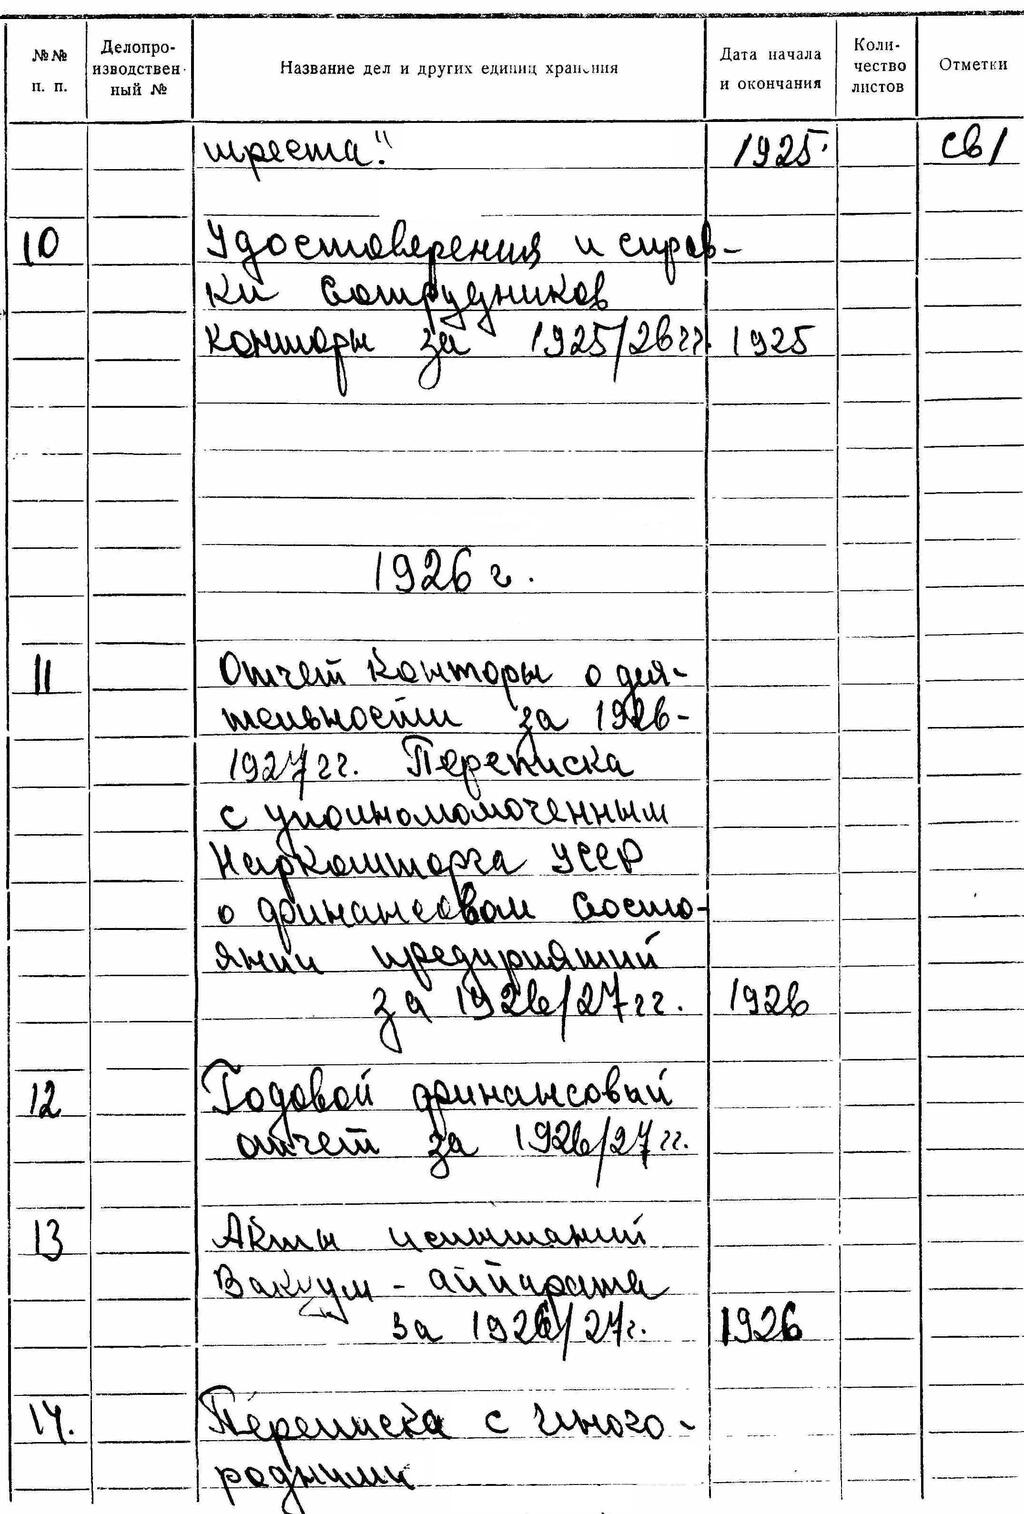 №№ п. п. Делопроизводственный № Название дел и других единиц хранения Дата начала и окончания Количество листов Отметки
треста." 1925. св1
10 Удостоверения и справ-
ки сотрудников
конторы за 1925/26 гг. 1925
1926 г.
11 Отчет конторы о дея-
тельности за 1926-
1927 гг. Переписка
с уполномоченным
Наркомторга УССР
о финансовом состо-
янии предприятий
за 1926/27 гг. 1926
12 Годовой финансовый
отчет за 1926/27 гг.
13 Акты испытаний
Вакуум-аппарата
за 1926/27 г. 1926
14. Переписка с иного-
родними